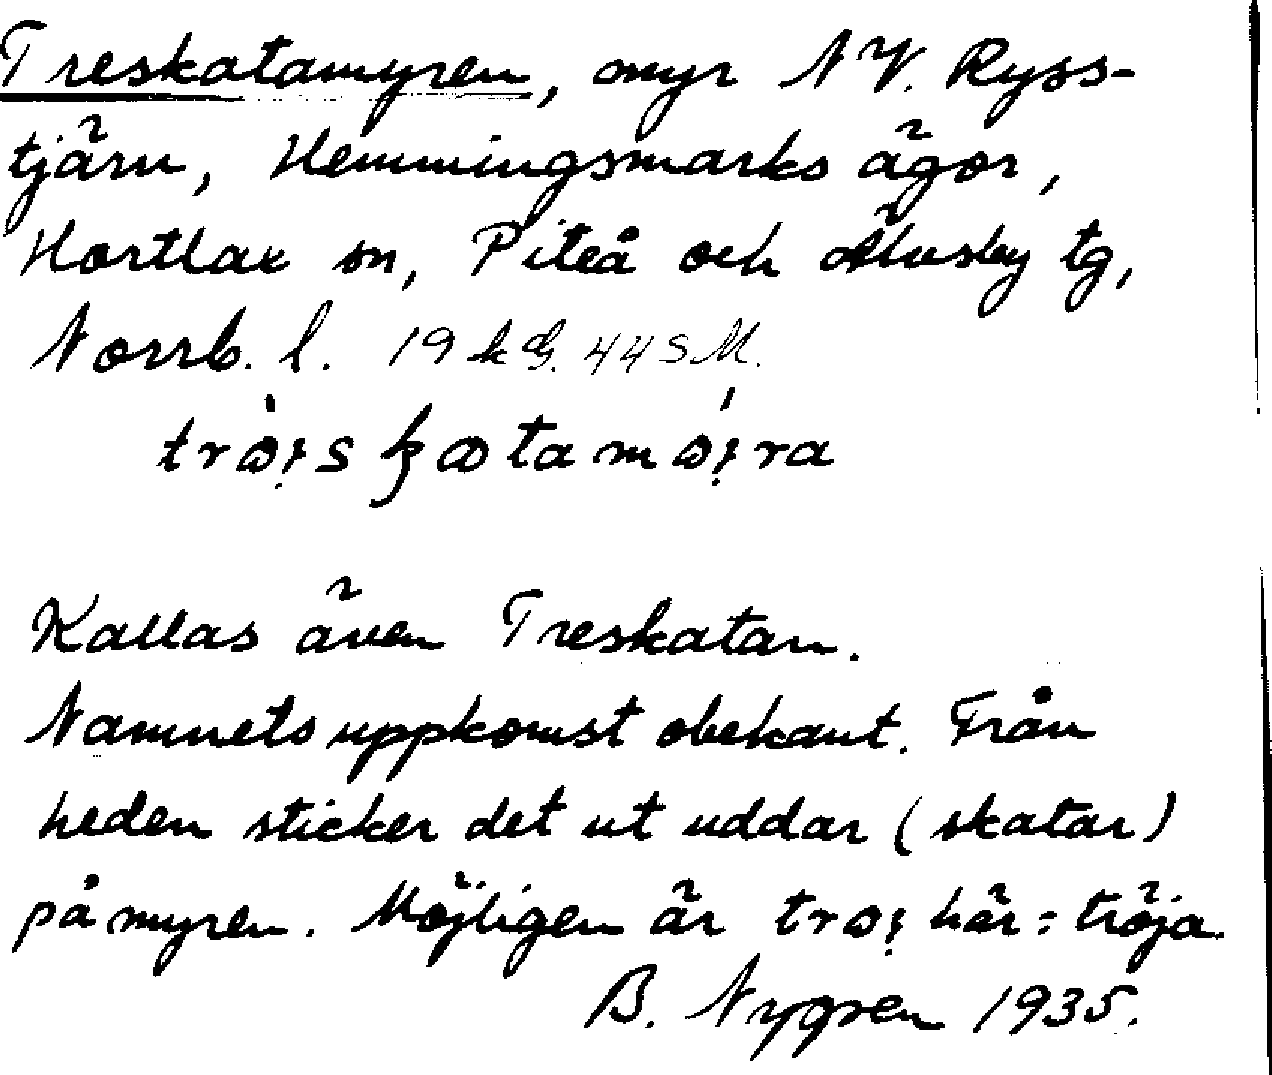 Treskatamyren, myr NV. Ryss-
tjärn, Hemmingsmarks ägor,
Hortlax sn, Piteå och Älvsby tg,
Norrb. l. 19 k G. 44 S M.
Kallas även Treskatan.
Namnets uppkomst obekant. Från
heden sticker det ut uddar (skatar)
på myren. Möjligen är här = tröja
B. Nygren 1935.